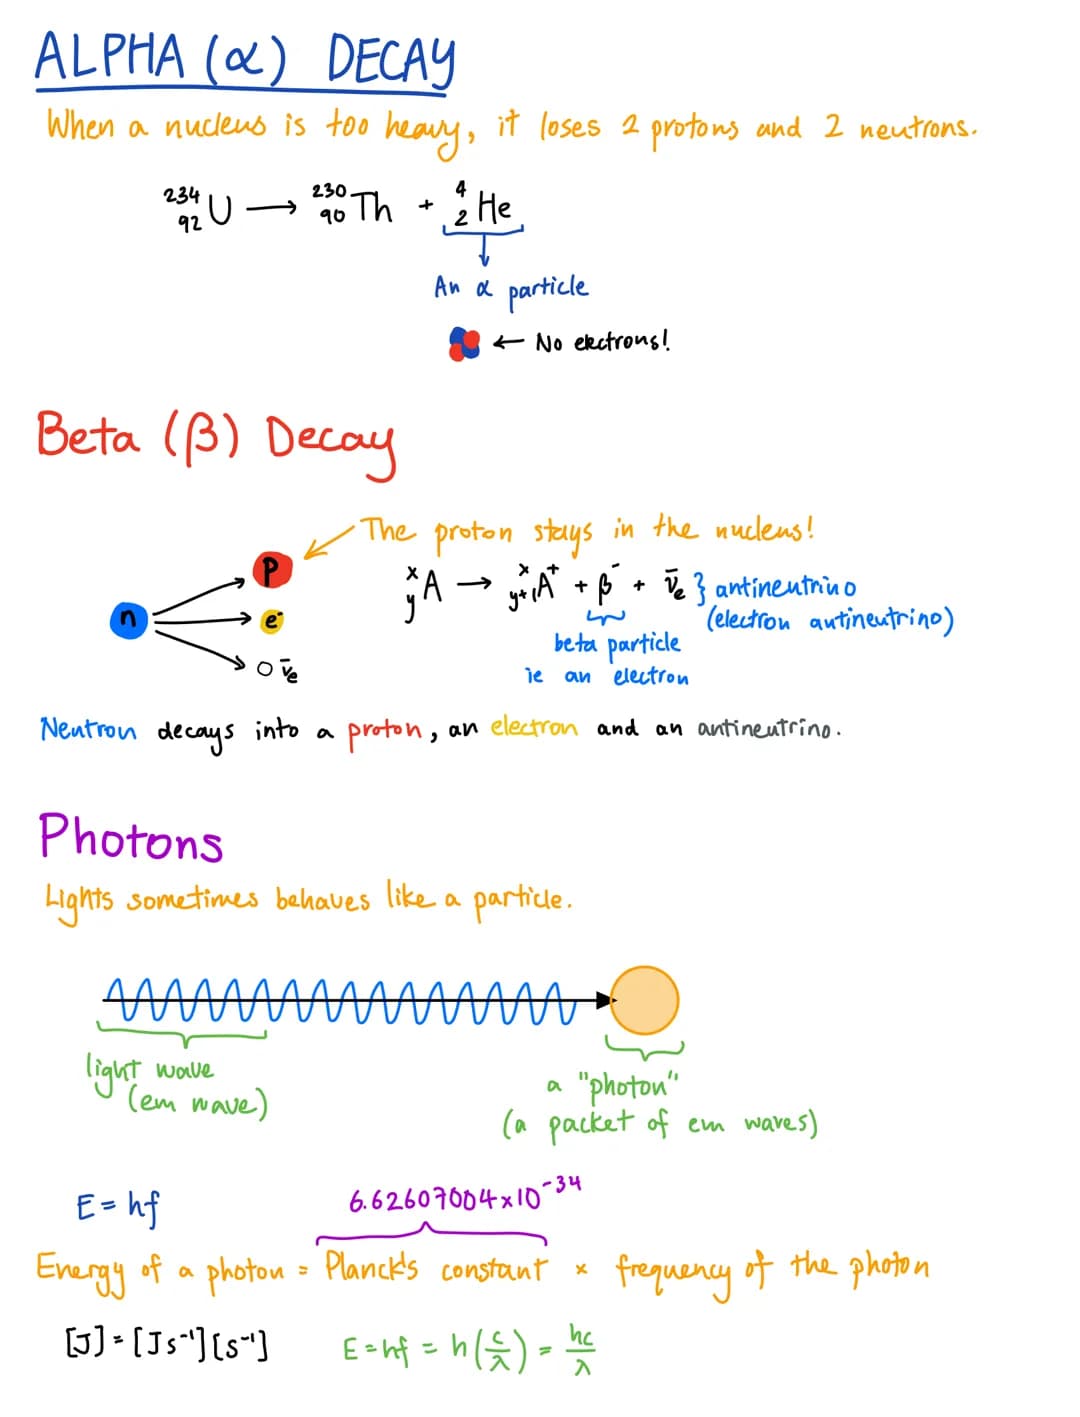 ALPHA (α) DECAY
When a nucleus is too heavy, it loses 2 protons and 2 neutrons.
²³⁴₉₂U → ²³⁰₉₀Th + ⁴₂He
An α particle
← No electrons!
Beta (β) Decay
The proton stays in the nucleus!
n
p
e⁻
ν̄ₑ
ˣᵧA → ˣᵧ₊₁A⁺ + β⁻ + ν̄ₑ } antineutrino
(electron antineutrino)
beta particle
ie an electron
Neutron decays into a proton, an electron and an antineutrino.
Photons
Lights sometimes behaves like a particle.
light wave
(em wave)
a "photon"
(a packet of em waves)
E = hf
6.62607004×10⁻³⁴
Energy of a photon = Planck's constant × frequency of the photon
[J] = [Js⁻¹][s⁻¹]
E = hf = h(c/λ) = hc/λ